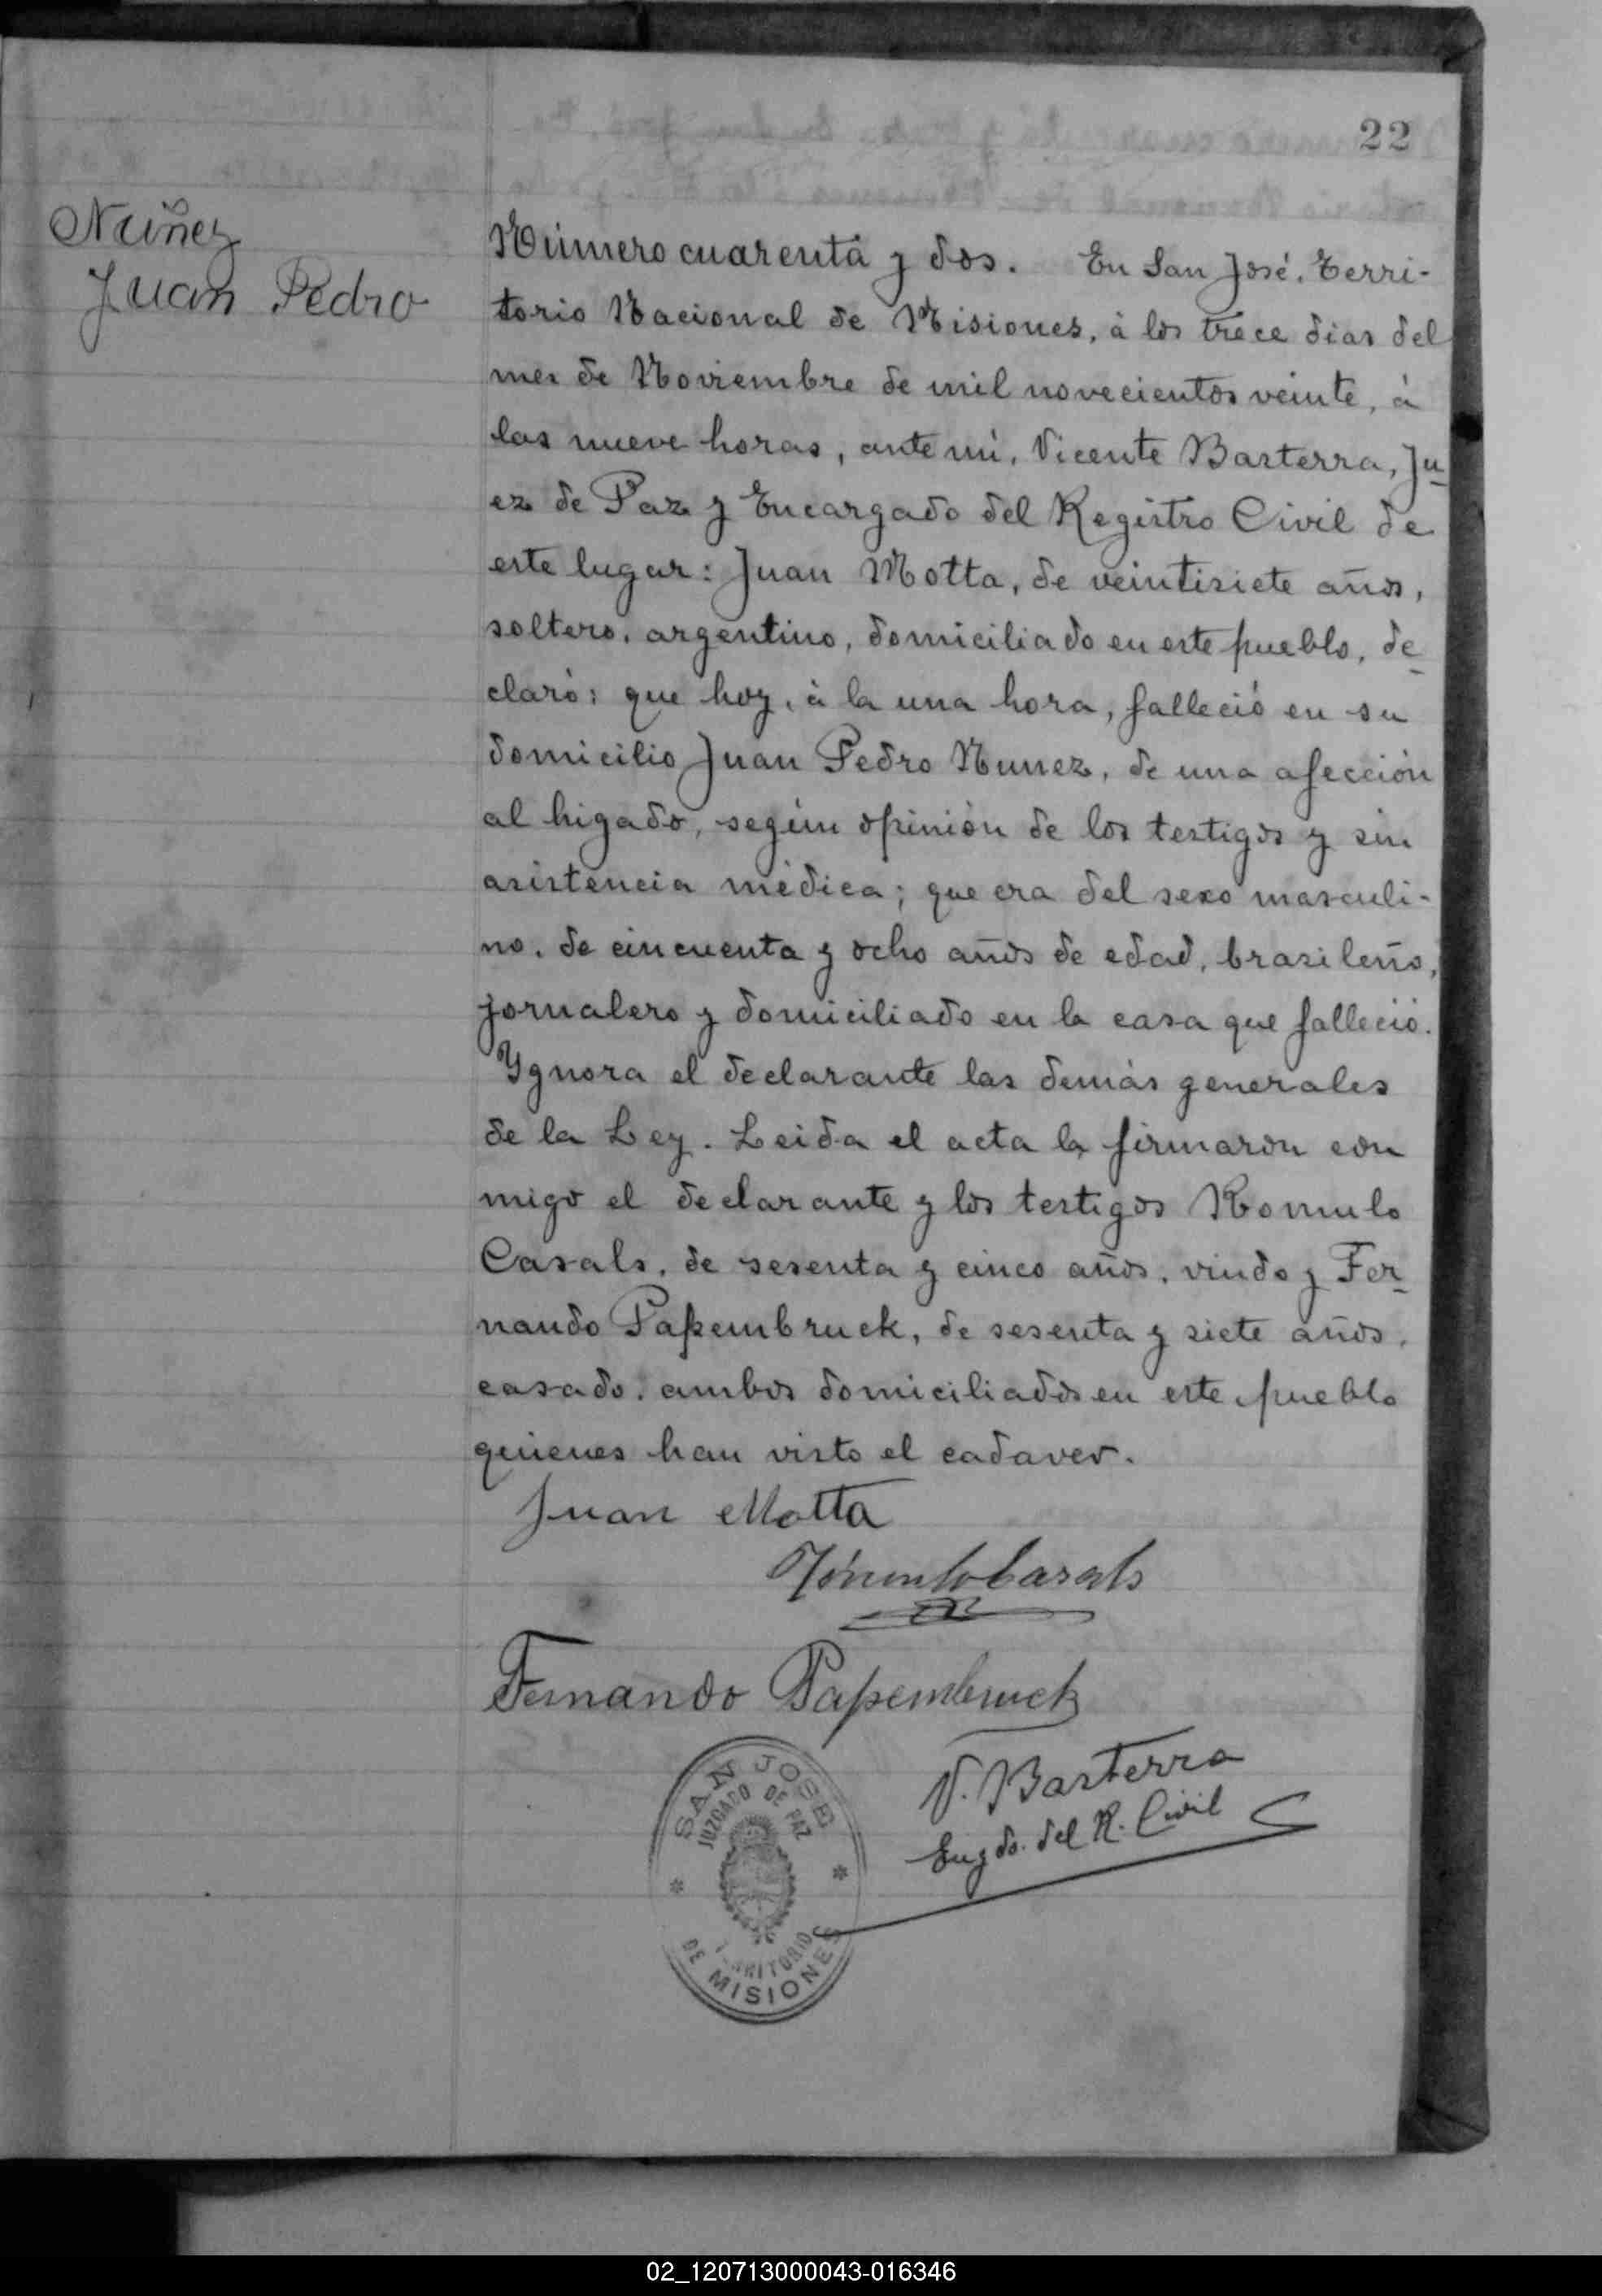 22
Nuñez
Juan Pedro
Número cuarenta y dos. En San José, Terri-
torio Nacional de Misiones, à los trece dias del
mes de Noviembre de mil novecientos veinte, à
las nueve horas, ante mi, Vicente Basterra, Ju
ez de Paz y Encargado del Registro Civil de
este lugar: Juan Motta, de veintisiete años,
soltero, argentino, domiciliado en este pueblo, de
claró: que hoy, à la una hora, falleció en su
domicilio Juan Pedro Nunez, de una afección
al higado, según opinión de los testigos y sin
asistencia mèdica; que era del sexo masculi-
no, de cincuenta y ocho años de edad, brasileño,
jornalero y domiciliado en la casa que falleció.
Ygnora el declarante las demás generales
de la Ley. Leida el acta la firmaron con
migo el declarante y los testigos Romulo
Casals, de sesenta y cinco años, viudo y Fer
nando Papembruck, de sesenta y siete años,
casado, ambos domiciliados en este pueblo
quienes han visto el cadaver.
Juan Motta
Rómulo Casals
Fernando Papembruck
V. Basterra
Engdo. del R. Civil
SAN JOSE
JUZGADO DE PAZ
TERRITORIO
DE MISIONES
02_120713000043-016346